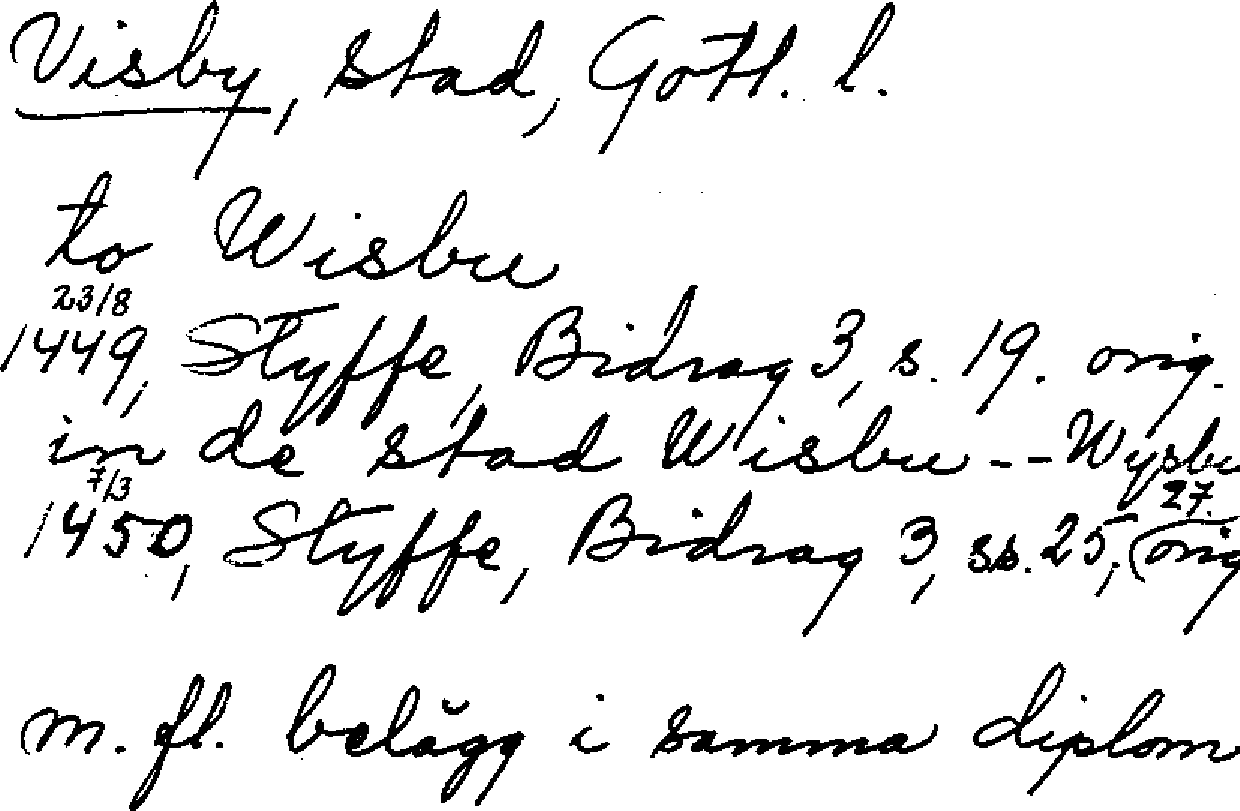 Visby, stad, Gotl. l.
to Wisbu
23/8
1449, Styffe, Bidrag 3, s. 19. orig.
in de stad Wisbu -- Wysbu
7/3
27.
1450, Styffe, Bidrag 3, ss. 25, (orig
m. fl. belägg i samma diplom